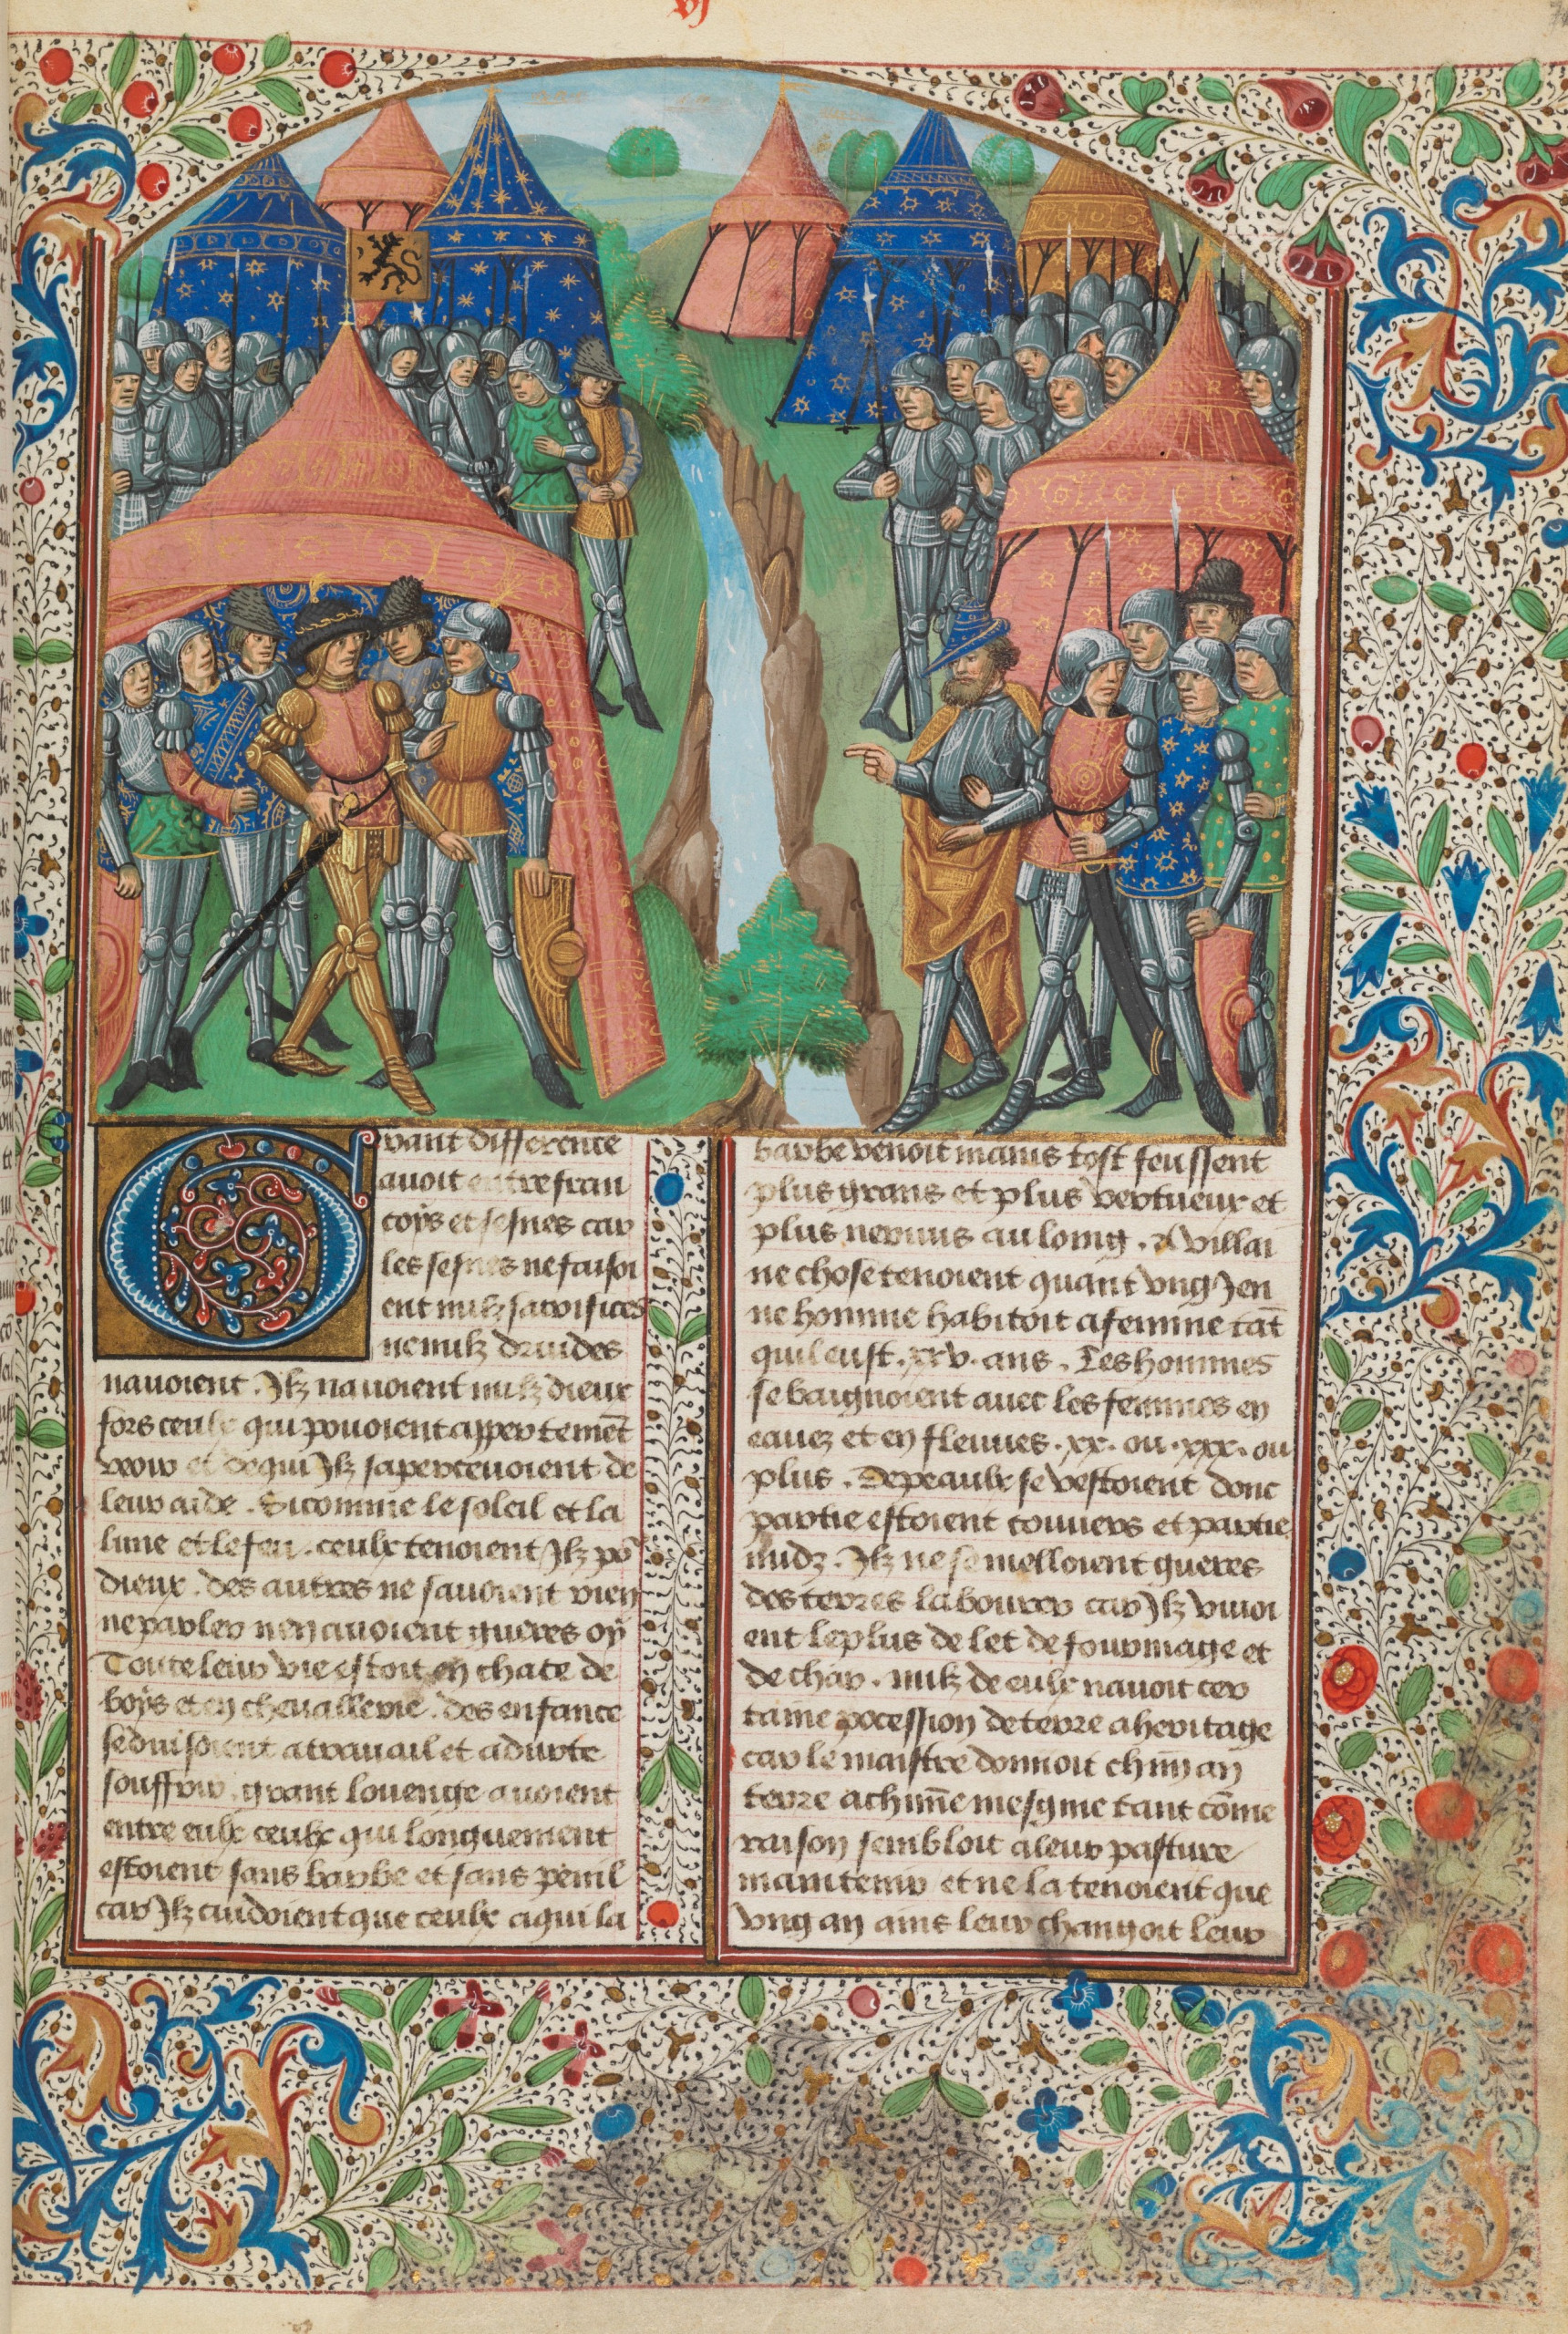 vj
Grant difference
avoit entre fran
coys et sesnes car
les sesnes ne faisoi
ent nulz sacrifices
ne nulz druides
navoient. Ilz navoient nulz dieux
fors ceulx qui povoient appertemēt
veoir et de qui Ilz sapercevoient de
leur aide. Si comme le soleil et la
lune et le feu. ceulx tenoient Ilz po~
dieux. des autres ne savoient rien
ne parler nen avoient gueres oÿ
Toute leur vie estoit en chace de
boys et en chevallerie. des enfance
se duisoient a travail et a durte
souffrir. grant louenge avoient
entre eulx ceulx qui longuement
estoient sans barbe et sans penil
car Ilz cuidoient que ceulx a qui la
barbe venoit mains tost feussent
plus grans et plus vertueux et
plus nervus au loing. A villai
ne chose tenoient quant ung Jen
ne homme habitoit a femme tāt
quil eust .xxv. ans. Les hommes
se baignoient avec les femmes en
eauez et en fleuves .xx. ou .xxx. ou
plus. De peaulx se vestoient donc
partie estoient couvers et partie
nudz. Ilz ne se melloient gueres
des terres labourer car Ilz vivoi
ent le plus de let de fourmage et
de char. nulz de eulx navoit cer
taine pocession de terre a heritage
car le maistre donnoit chūn an
terre a chūne mesgnie tant cōme
raison sembloit a leur pasture
maintenir et ne la tenoient que
ung an ains leur changoit leur